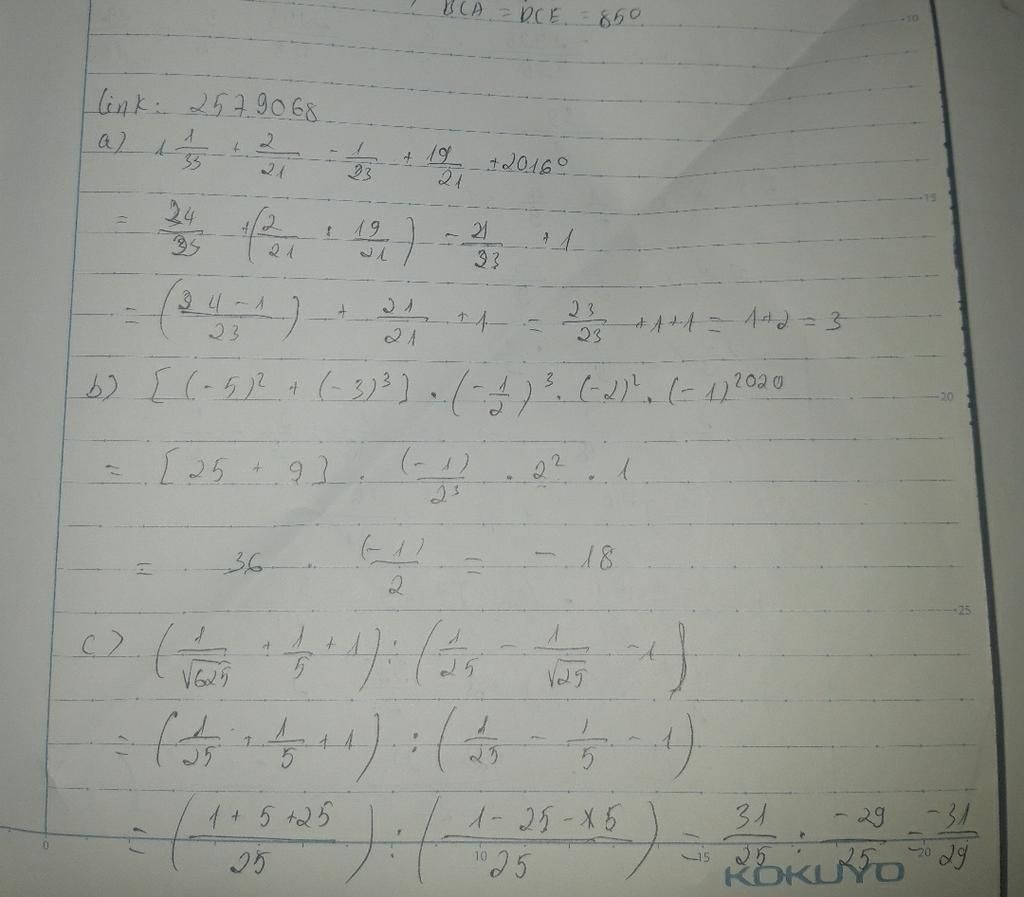 BCA = DCE = 85°
link: 2579068
a) 1 1/33 + 2/21 - 1/23 + 19/21 + 2016⁰
= 34/33 + (2/21 + 19/21) - 21/33 + 1
= (34 - 1/23) + 21/21 + 1 = 23/23 + 1 + 1 = 1 + 2 = 3
b) [(-5)² + (-3)³] . (-1/2)³ . (-2)² . (-1)²⁰²⁰
= [25 + 9] . (-1)/2³ . 2² . 1
= 36 . (-1)/2 = - 18
c) (1/√625 + 1/5 + 1) : (1/25 - 1/√25 - 1)
= (1/25 + 1/5 + 1) : (1/25 - 1/5 - 1)
= (1 + 5 + 25/25) : (1 - 25 - 5/25) = 31/25 : -29/25 = -31/29
KOKUYO
10
15
20
25
0
10
15
20